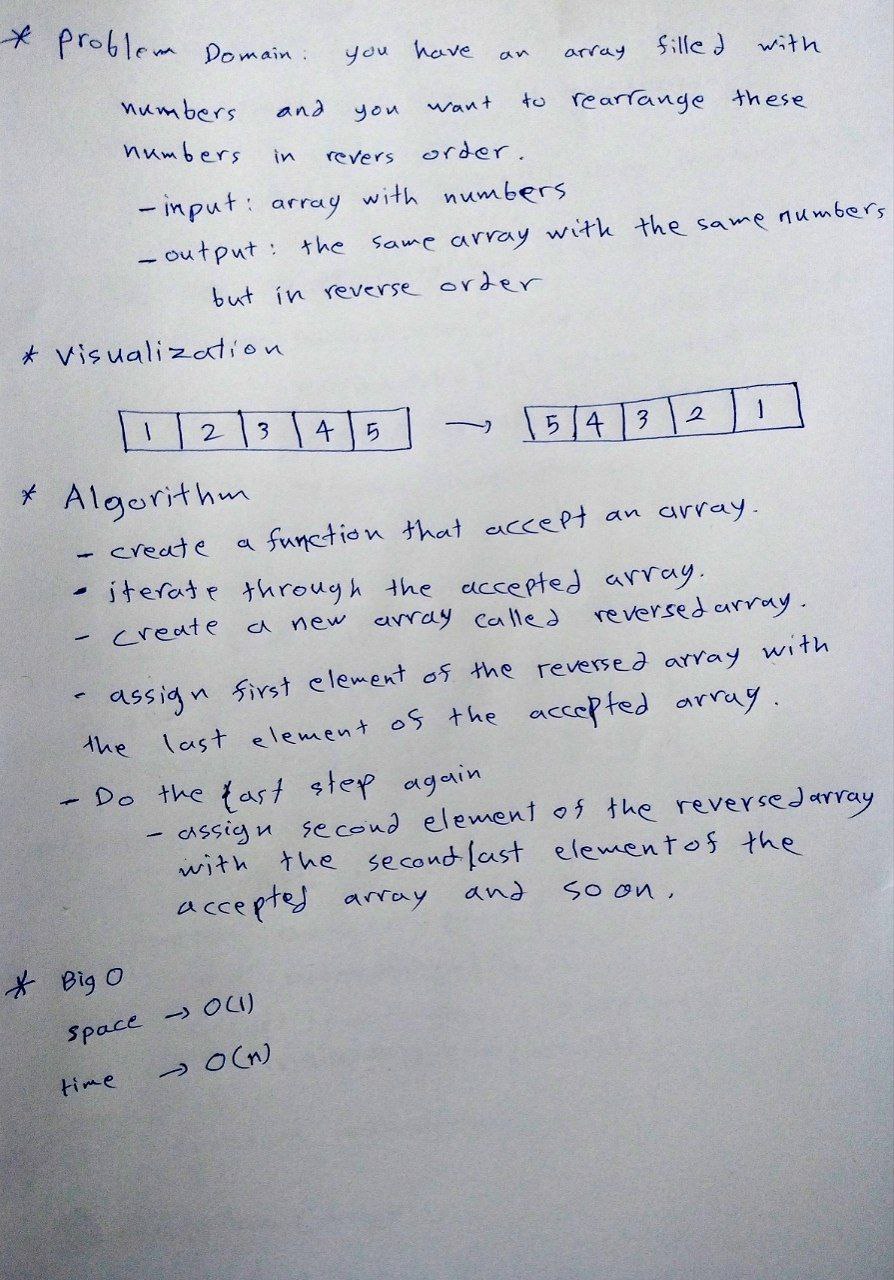 * Problem Domain: you have an array filled with
numbers and you want to rearrange these
numbers in revers order.
- input: array with numbers
- output: the same array with the same numbers
but in reverse order
* Visualization
1 2 3 4 5 → 5 4 3 2 1
* Algorithm
- create a function that accept an array.
- iterate through the accepted array.
- create a new array called reversedarray.
- assign first element of the reversed array with
the last element of the accepted array.
- Do the last step again
- assign second element of the reversedarray
with the second last element of the
accepted array and so on.
* Big O
space → O(1)
time → O(n)